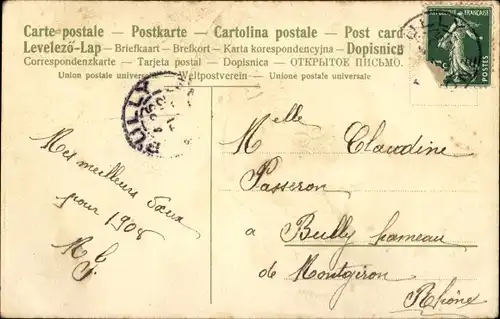 Carte postale — Postkarte — Cartolina postale — Post card
Levelező-Lap — Briefkaart — Brefkort — Karta korespondencyjna — Dopisnica
Correspondenzkarte — Tarjeta postal — Dopisnica — ОТКРЫТОЕ ПИСЬМО.
Union postale universelle Weltpostverein — Unione postale universale
FRANÇAISE
POSTES
BULLY
BULLY
Mes meilleurs vœux
pour 1908
Melle Claudine
Passeron
a Bully hameau
de Montgiron
Rhône